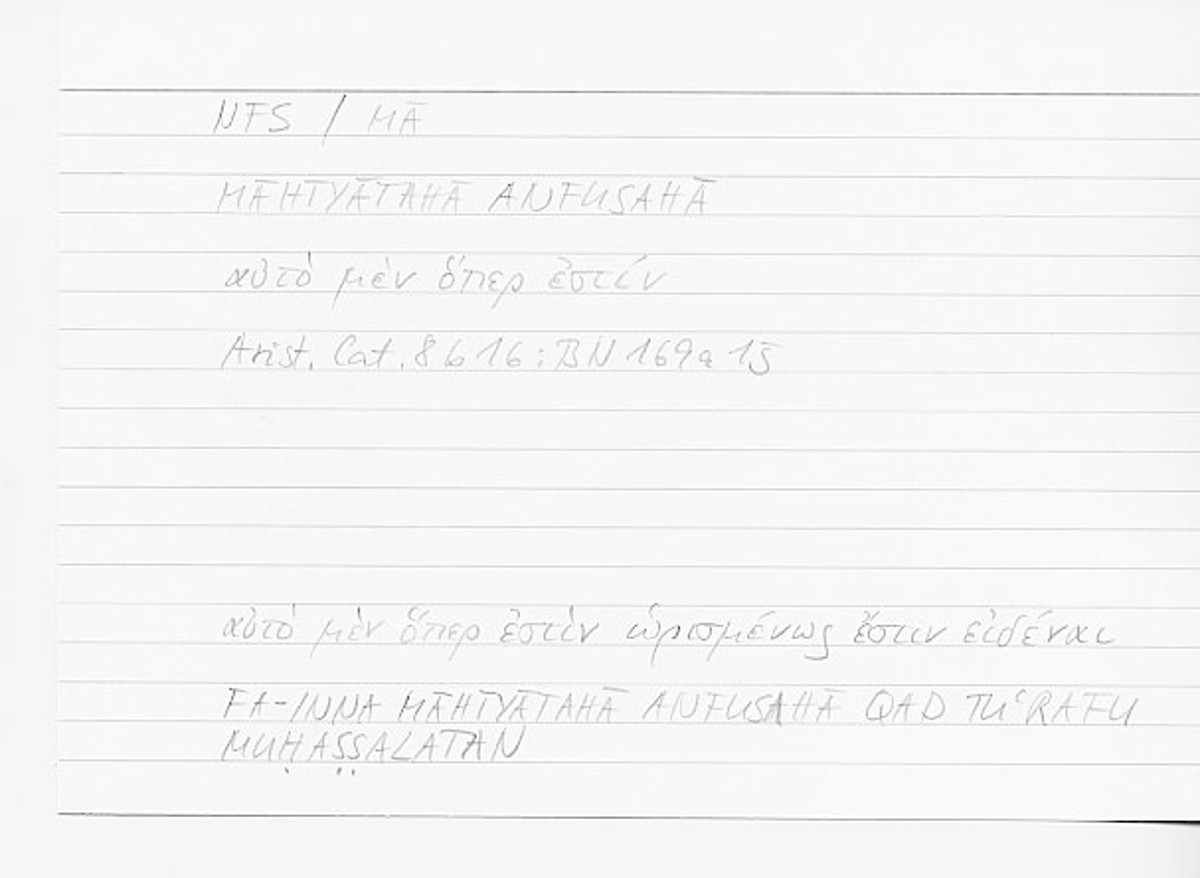 NFS / MĀ
MĀHĪYĀTAHĀ ANFUSAHĀ
αὐτὸ μὲν ὅπερ ἐστίν
Arist. Cat. 8 b 16 ; BN 169a 15
αὐτὸ μὲν ὅπερ ἐστὶν ὡρισμένως ἔστιν εἰδέναι
FA-INNA MĀHĪYĀTAHĀ ANFUSAHĀ QAD TUʿRAFU
MUḤAṢṢALATAN